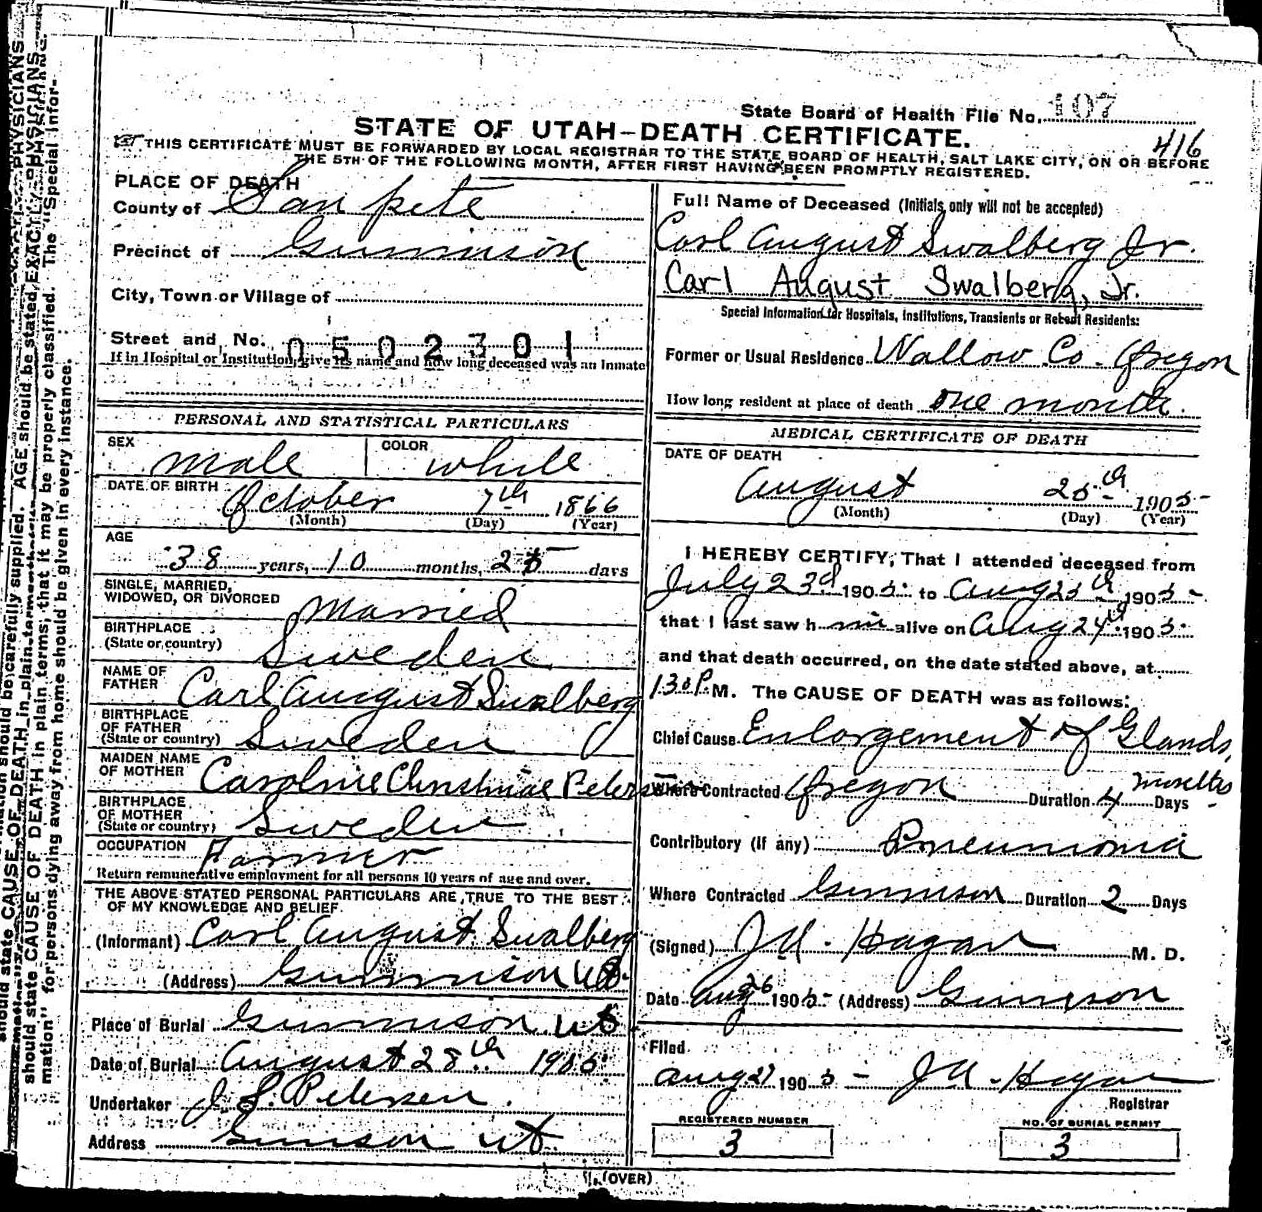 State Board of Health File No. 107
416
STATE OF UTAH—DEATH CERTIFICATE.
THIS CERTIFICATE MUST BE FORWARDED BY LOCAL REGISTRAR TO THE STATE BOARD OF HEALTH, SALT LAKE CITY, ON OR BEFORE
THE 5TH OF THE FOLLOWING MONTH, AFTER FIRST HAVING BEEN PROMPTLY REGISTERED.
PLACE OF DEATH
County of San pete
Precinct of Gunnison
City, Town or Village of
Street and No. 0502301
If in Hospital or Institution, give its name and how long deceased was an Inmate
PERSONAL AND STATISTICAL PARTICULARS
SEX male COLOR white
DATE OF BIRTH October 7th 1866
(Month) (Day) (Year)
AGE
38 years, 10 months, days
SINGLE, MARRIED,
WIDOWED, OR DIVORCED Married
BIRTHPLACE
(State or country) Sweden
NAME OF
FATHER Carl August Swalberg
BIRTHPLACE
OF FATHER
(State or country) Sweden
MAIDEN NAME
OF MOTHER Caroline Christinae Peterson
BIRTHPLACE
OF MOTHER
(State or country) Sweden
OCCUPATION Farmer
Return remunerative employment for all persons 10 years of age and over.
THE ABOVE STATED PERSONAL PARTICULARS ARE TRUE TO THE BEST
OF MY KNOWLEDGE AND BELIEF
(Informant) Carl August Swalberg
(Address) Gunnison Ut.
Place of Burial Gunnison Ut
Date of Burial August 28th 1905
Undertaker J. S. Petersen.
Address Gunnison Ut
Full Name of Deceased (Initials only will not be accepted)
Carl August Swalberg Jr.
Carl August Swalberg, Jr.
Special Information for Hospitals, Institutions, Transients or Recent Residents:
Former or Usual Residence Wallow Co. Oregon
How long resident at place of death one month.
MEDICAL CERTIFICATE OF DEATH
DATE OF DEATH
August 25th 1905
(Month) (Day) (Year)
I HEREBY CERTIFY, That I attended deceased from
July 23d 1905 to Aug 25th 1905
that I last saw him alive on Aug 24th 1905
and that death occurred, on the date stated above, at
130 P. M. The CAUSE OF DEATH was as follows:
Chief Cause Enlargement of Glands,
Where Contracted Oregon Duration 4 months Days
Contributory (If any) Pneumonia
Where Contracted Gunnison Duration 2 Days
(Signed) J A. Hagan M. D.
Date Aug 26 1905 (Address) Gunnison
Filed
Aug 27 1905 J A. Hagan
Registrar
REGISTERED NUMBER
3
NO. OF BURIAL PERMIT
3
(OVER)
mation should be carefully supplied. AGE should be stated EXACTLY. PHYSICIANS
should state CAUSE OF DEATH in plain terms, that it may be properly classified. The "Special Infor-
mation" for persons dying away from home should be given in every instance.